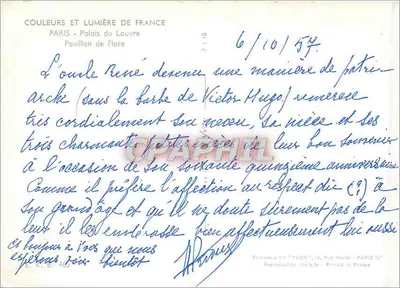 COULEURS ET LUMIÈRE DE FRANCE
PARIS - Palais du Louvre
Pavillon de Flore
6/10/57.
L'oncle René devenu une manière de patri-
arche (sans la barbe de Victor Hugo) remercie
très cordialement son neveu, sa nièce et ses
trois charmants de leur bon souvenir
à l'occasion de son soixante quinzième anniversaire
Comme il préfère l'affection au respect dû (?) à
son grand âge et qu'il ne doute sûrement pas de la
leur il les embrasse bien affectueusement lui aussi
et bonjour à tous que nous
espérons voir bientôt
DELCAMPE